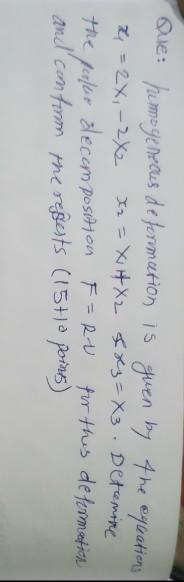 Que: homogeneous deformation is given by the equations
x₁ = 2X₁ - 2X₂ x₂ = X₁ + X₂ & x₃ = X₃. Determine
the polar decomposition F = RU for this deformation
and confirm the results (15+10 points)